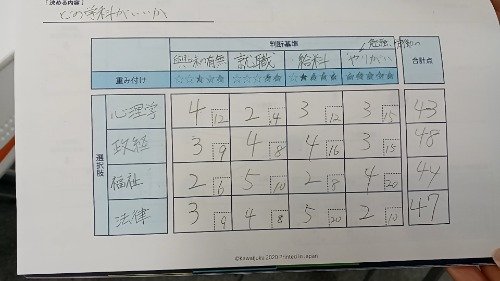 「決める内容」
どの学科がいいか
判断基準
勉強、活動の
興味の有無 就職 給料 やりがい 合計点
重み付け ☆☆★★★ ☆☆☆★★ ☆★★★★ ★★★★★
選択肢
心理学 4 12 2 4 3 12 3 15 43
政経 3 9 4 8 4 16 3 15 48
福祉 2 6 5 10 2 8 4 20 44
法律 3 9 4 8 5 20 2 10 47
©Kawaijuku 2020 Printed in Japan